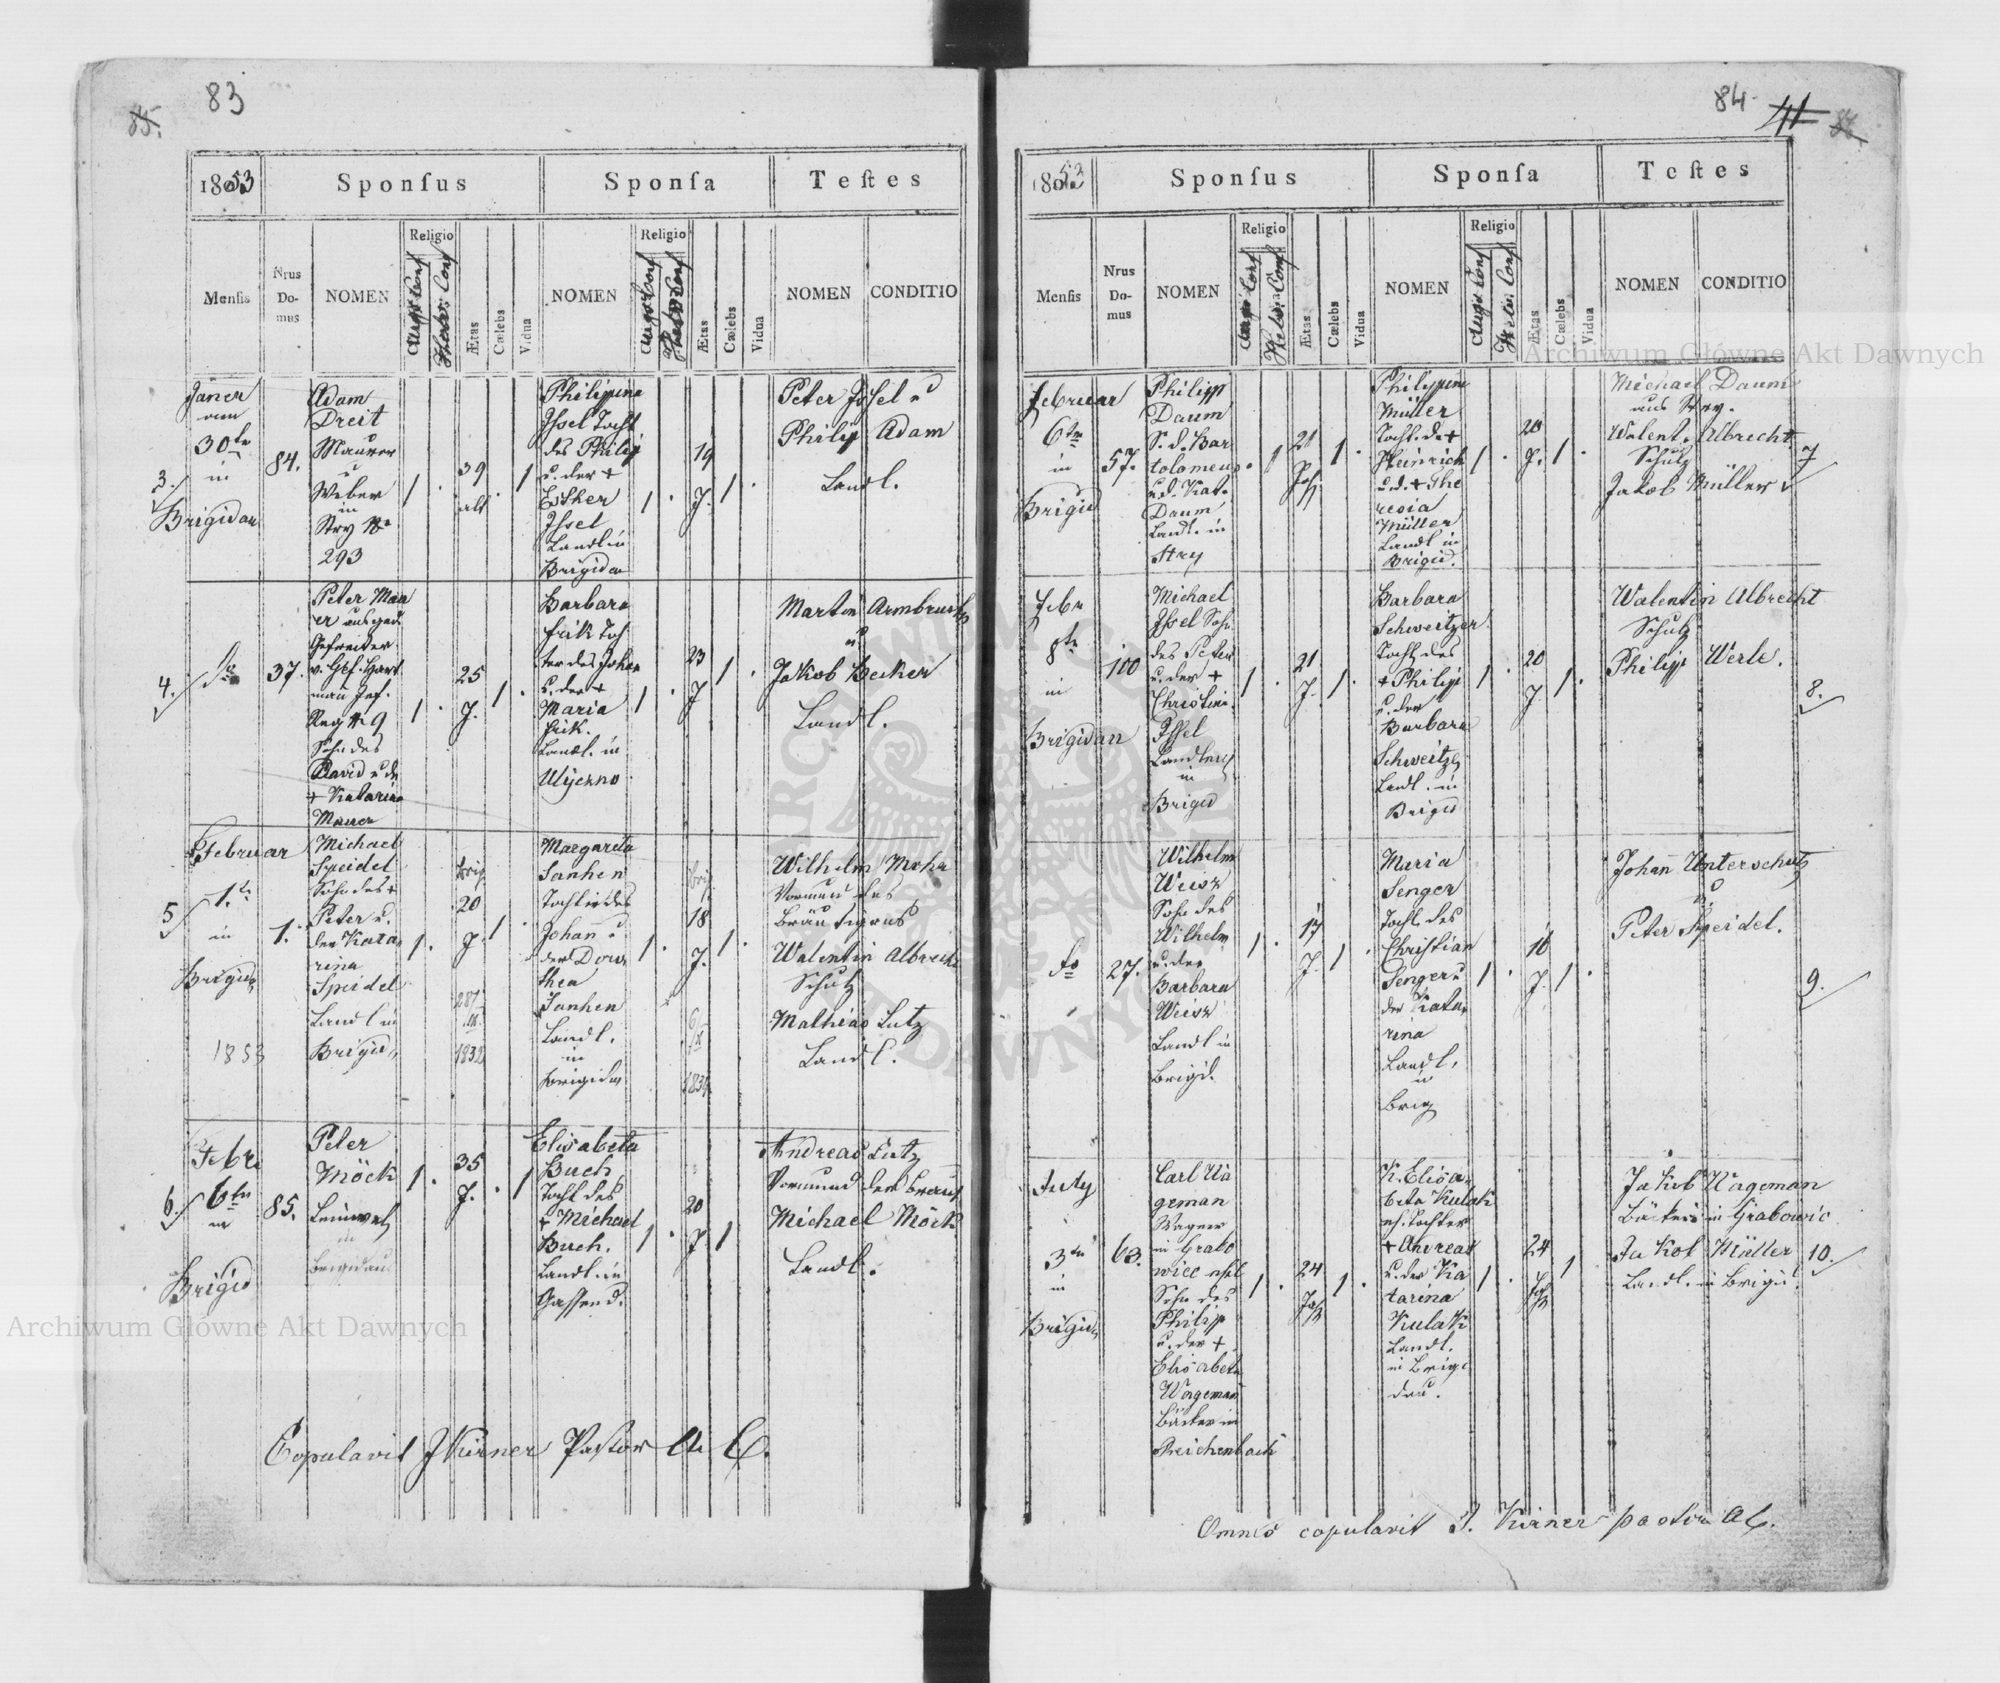 83
85.
1853
Sponſus
Sponſa
Teſtes
Religio
Religio
Menſis
Nrus Domus
NOMEN
Augs. Conf
Helv. Conf
Ætas
Cælebs
Vidua
NOMEN
Augs. Conf
Helv. Conf
Ætas
Cælebs
Vidua
NOMEN
CONDITIO
3.
Jäner
am
30te
in
Brigidau
84.
Adam
Dreit
Maurer
u
Weber
in
Stry No
293
1
39
alt
1
Philippina
Issel Tocht
des Philip
u. der +
Esther
Issel
Landl in
Brigidau
1
19
J.
1
Peter Issel u
Philip Adam
Landl.
4.
do
37.
Peter Mau
er ausged
Gefreiter
v. Gf. Hart
man Inf.
Reg No 9
Sohn des
David u. der
+ Katarina
Maurer
1
25
J.
1
Barbara
Frik Toch
ter des Johan
u. der +
Maria
Frik.
Landl. in
Uliczno
1
23
J
1
Martin Armbruster
u
Jakob Becker
Landl.
5
Februar
1te
in
Brigid
1853
1.
Michael
Speidel
Sohn des +
Peter u.
der Kata
rina
Speidel
Landl in
Brigid
1
Brig.
20
J.
1832
1
Margareta
Sanhen
Tochter des
Johan u
der Doro
thea
Sanhen
Landl.
in
Brigidau
1
Brig.
18
J.
1834
1
Wilhelm Mohr
Vormund des
Bräutigams
Walentin Albrecht
Schulz
Mathias Lutz
Landl.
6.
Febr.
6tn
in
Brigid
85.
Peter
Möck
in
Brigidau
1
35
J.
1
Elisabeta
Buch
Tocht des
+ Michael
Buch.
Landl. in
Gassend.
1
20
J
1
Andreas Lutz
Vormund der Braut
Michael Möck
Landl.
Copulavit J Kirner Pastor A. C.
84
1853
Sponſus
Sponſa
Teſtes
Religio
Religio
Menſis
Nrus Domus
NOMEN
Augs. Conf
Helv. Conf
Ætas
Cælebs
Vidua
NOMEN
Augs. Conf
Helv. Conf
Ætas
Cælebs
Vidua
NOMEN
CONDITIO
Archiwum Główne Akt Dawnych
Februar
6tn
in
Brigid
57.
Philipp
Daum
S. d. Bar
tolomeus
u. d. Kat.
Daum
Landl. in
Stry
1
21
Jah
1
Philippine
Müller
Tocht. d. +
Heinrich
u. d. + The
resia
Müller
Landl in
Brigid.
1
20
J.
1
Michael Daum
aus Stry.
Walent. Albrecht
Schulz
Jakob Müller
7
Febr
8tn
in
Brigidau
100
Michael
Issel Sohn
des Peter
u. der +
Christina
Issel
Landleut
in
Brigid
1
21
J.
1
Barbara
Schweitzer
Tocht des
+ Philip
u. der
Barbara
Schweitzer
Landl. in
Brigid
1
20
J
1
Walentin Albrecht
Schulz
Philipp Werle.
8.
do
27.
Wilhelm
Weisz
Sohn des
Wilhelm
u. der
Barbara
Weisz
Landl in
Brigid.
1
17
J.
1
Maria
Senger
Tocht des
Christian
Senger u
der Kata
rina
Landl.
in
Brig
1
16
J.
1
Johan Unterschutz
u.
Peter Speidel.
9.
July
3tn
in
Brigid
63.
Carl Wa
geman
Wagner
in Grabo
wiec ehel
Sohn des
Philip
u. der +
Elisabeta
Wageman
Bäcker in
Reichenbach
1
24
Jah
1
K. Elisa
beta Kulak
eh. Tochter
+ Andreas
u. der Ka
tarina
Kulak
Landl.
in Brigi
dau.
1
24
Jah
1
Jakob Wageman
Bäcker in Grabowic
Jakob Müller
Landl. in Brigid.
10.
Omnes copulavit J. Kirner pastor A C.
Archiwum Główne Akt Dawnych